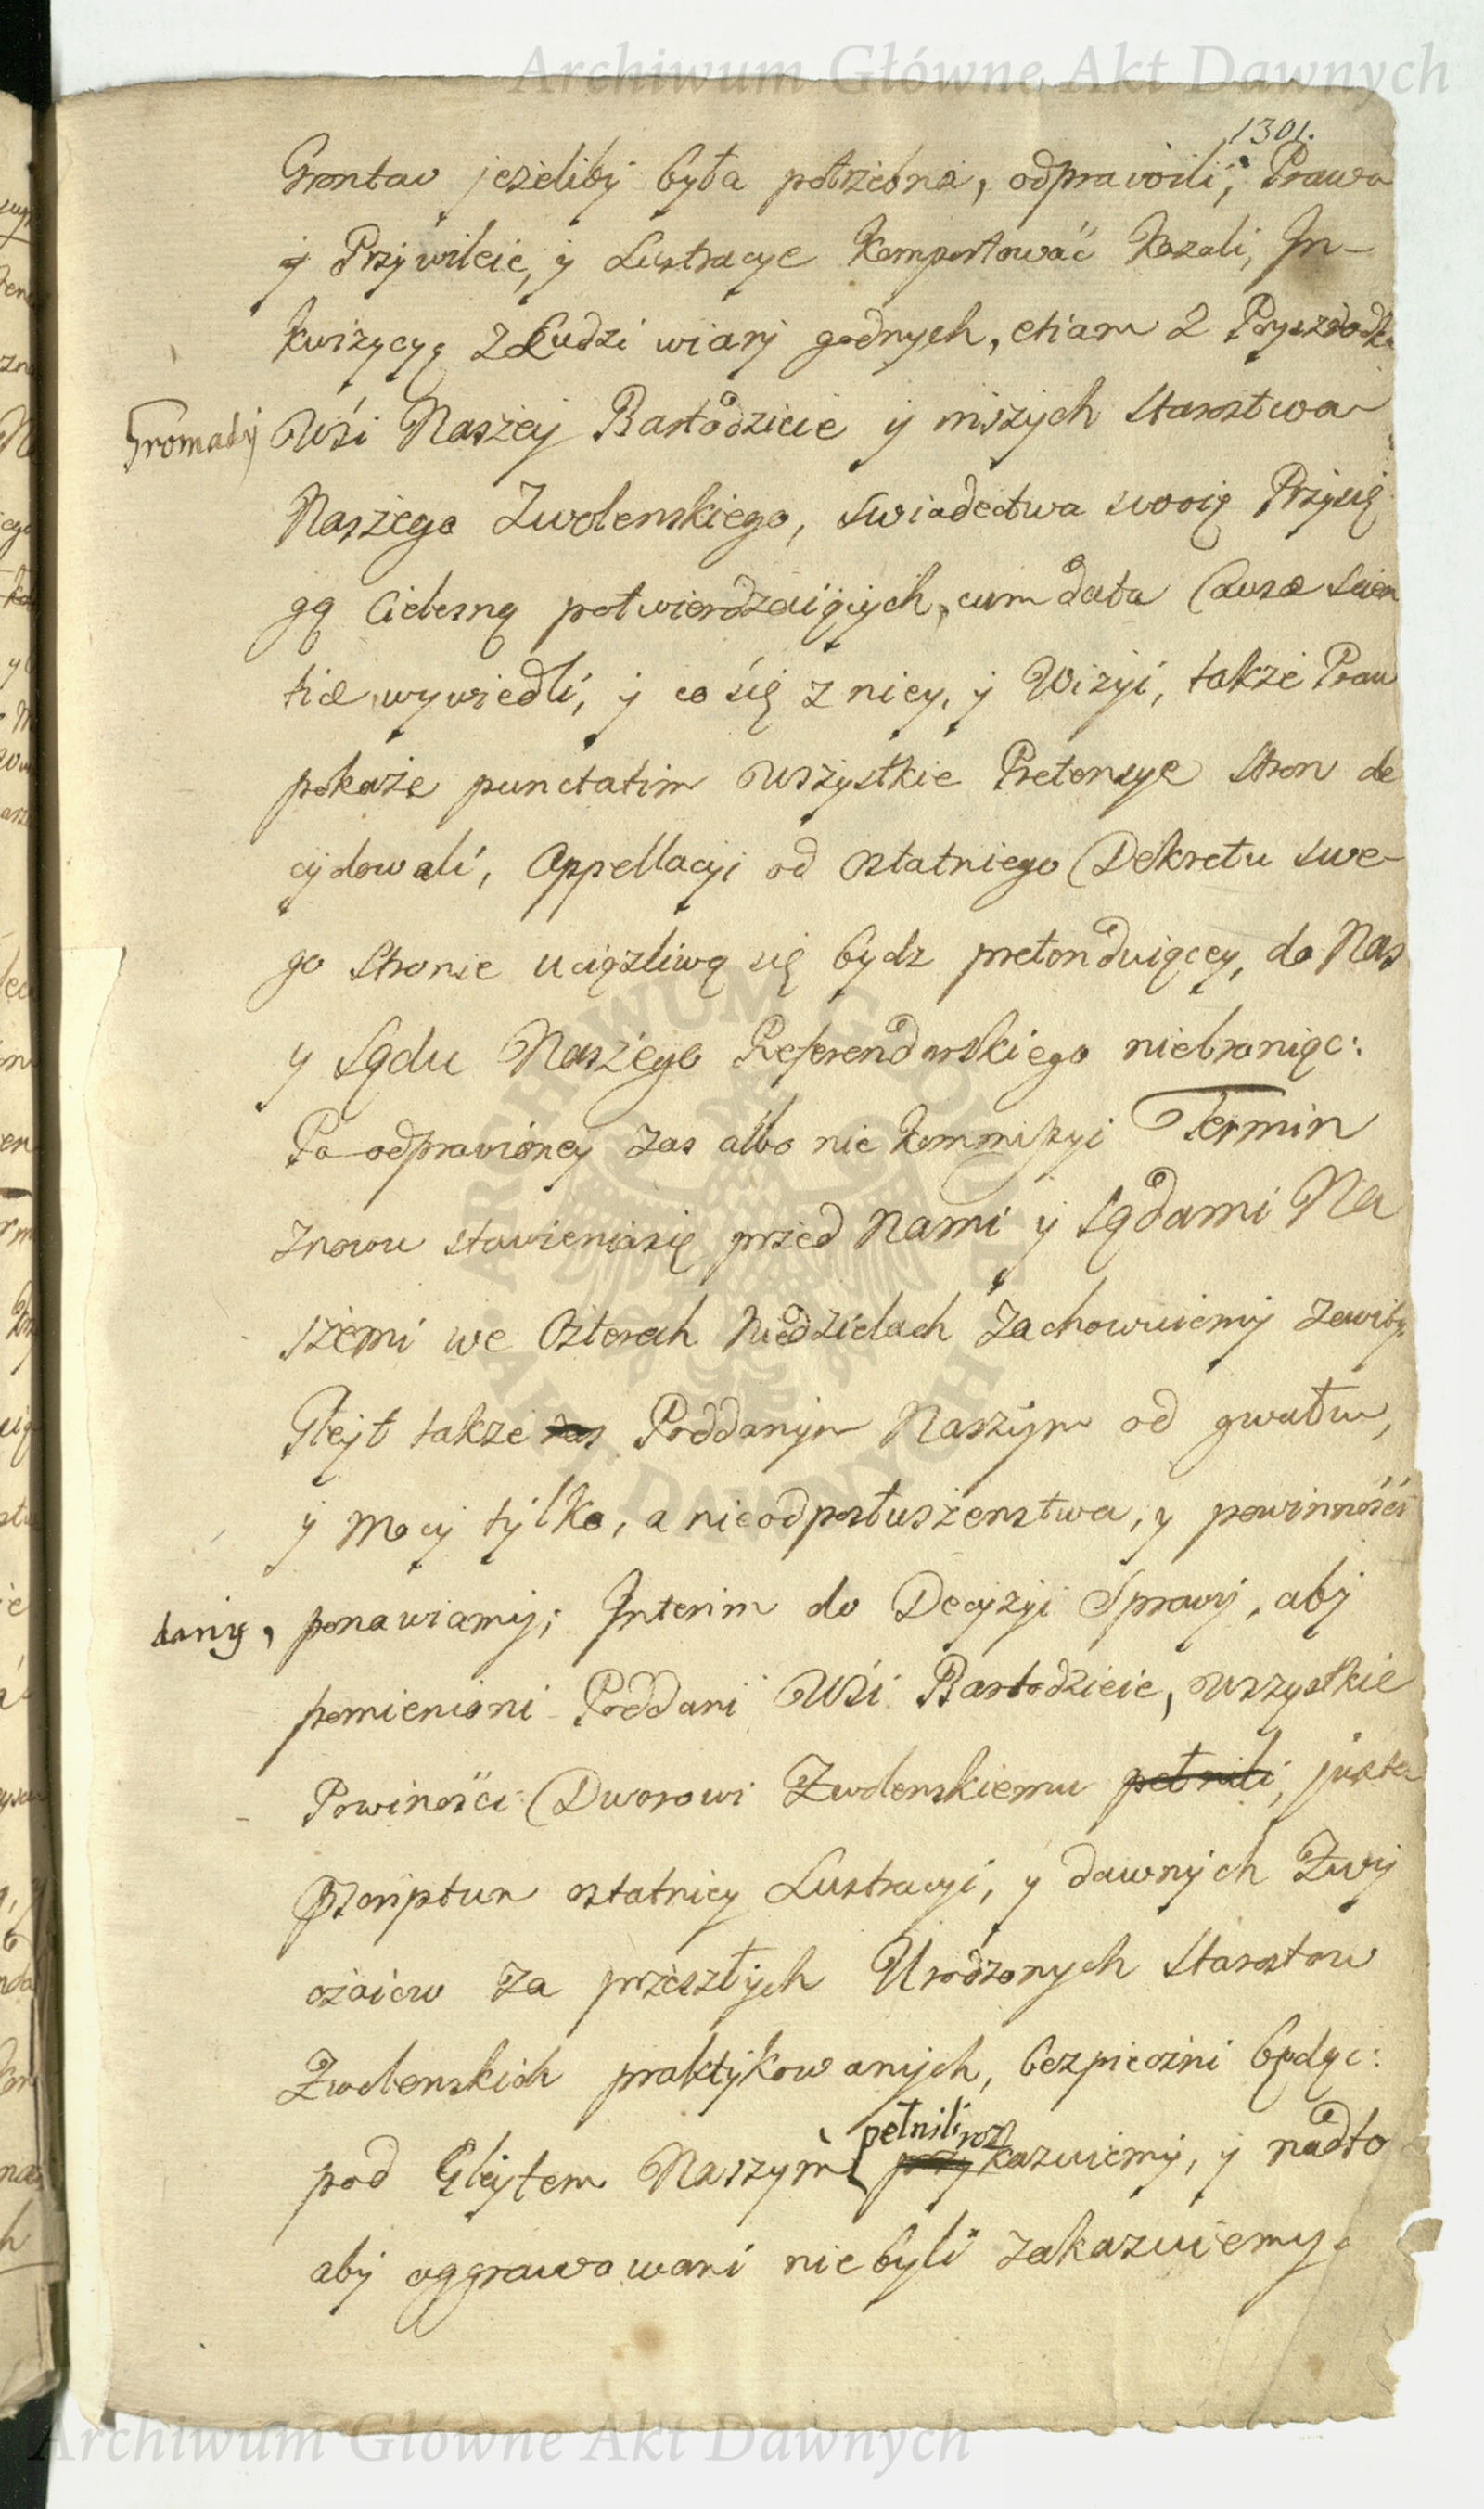 Archiwum Główne Akt Dawnych
1301.
Grontow jezeliby była potrzebna, odprawili, Prawa
y Przywileie, y Lustracye Komportować Kazali, In-
kwizycyą z Ludzi wiary godnych, etiam z Pryszodka
Gromady Wśi Naszey Bartodzieie y inszych Starostwa
Naszego Zwolenskiego, swiadectwa swoie Przysię
gą Cielesną potwierdzaiących, cum data Causæ Scien
tiæ wywiedli, y co się z niey, y Wizyi, także Praw
pokaże punctatim wszystkie Pretensye Stron de
cydowali, Appellacyi od ostatniego Dekretu swe-
go Stronie uciązliwą się bydz pretenduiącey, do Nas
y Sądu Naszego Referendarskiego niebroniąc:
Po odprawioney zas albo nie Kommizyi Termin
znowu stawieniasię przed Nami y Sądami Na
szemi we Czterech Niedzielach Zachowuiemy zawity
Gleyt także zas Poddanym Naszym od gwałtu,
y Mocy tylko, a nieodposłuszenstwa, y powinnośći
dany, ponawiamy; Interim do Decyzyi Sprawy, aby
pomienioni Poddani Wśi Bartodzieie, wszystkie
Powinośći Dworowi Zwolenskiemu pełnili, juxta
Præscriptum ostatniey Lustracyi, y dawnych Zwy
czaiow za przeszłych Urodzonych Starostow
Zwolenskich praktykowanych, bezpieczni będąc:
pełnili roz
pod Gleytem Naszym przykazuiemy, y nadto
aby aggrawowani nie byli zakazuiemy.
Archiwum Główne Akt Dawnych